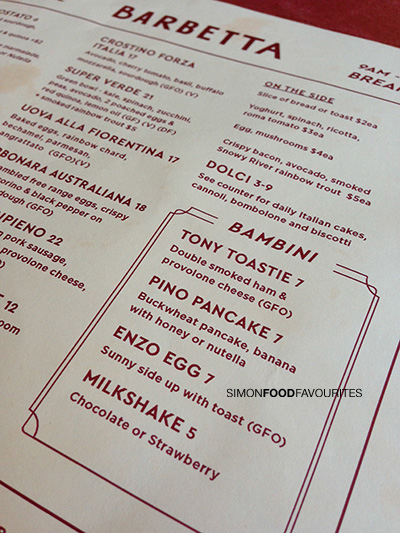 BARBETTA
9AM -
CROSTINO FORZA
ITALIA 17
Avocado, cherry tomato, basil, buffalo
mozzarella, sourdough (GFO) (V)
SUPER VERDE 21
Green bowl - kale, spinach, zucchini,
peas, avocado, 2 poached eggs
red quinoa, lemon oil (GF) (V) (DF)
+ smoked rainbow trout $5
UOVA ALLA FIORENTINA 17
Baked eggs, rainbow chard,
bechamel, parmesan,
(GFO)(V)
AUSTRALIANA 18
free range eggs, crispy
& black pepper on
(GFO)
22
pork sausage,
provolone cheese,
12
ON THE SIDE
Slice of bread or toast $2ea
Yoghurt, spinach, ricotta,
roma tomato $3ea
Egg, mushrooms $4ea
Crispy bacon, avocado, smoked
Snowy River rainbow trout $5ea
DOLCI 3-9
See counter for daily Italian cakes,
cannoli, bombolone and biscotti
BAMBINI
TONY TOASTIE 7
Double smoked ham &
provolone cheese (GFO)
PINO PANCAKE 7
Buckwheat pancake, banana
with honey or nutella
ENZO EGG 7
Sunny side up with toast (GFO)
MILKSHAKE 5
Chocolate or Strawberry
SIMONFOODFAVOURITES